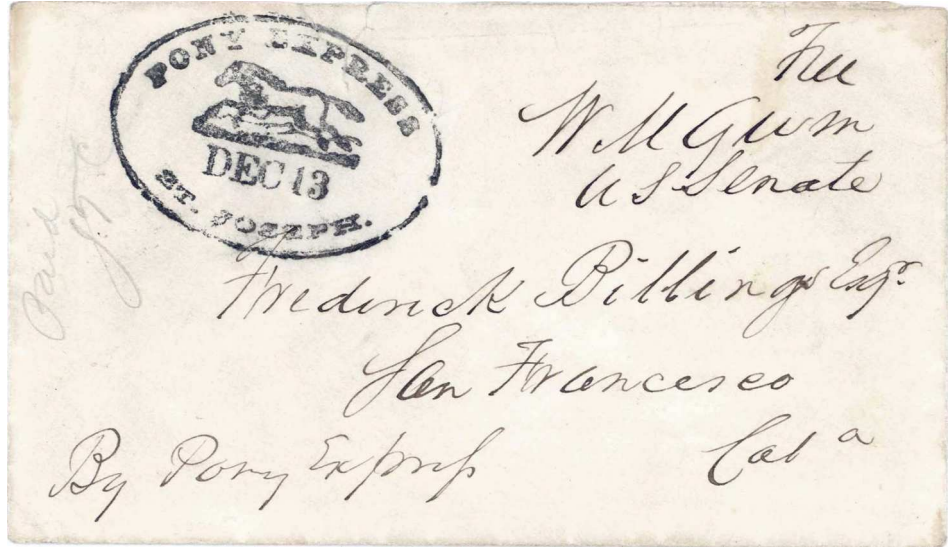 PONY EXPRESS
DEC 13
ST. JOSEPH.
Free
W M Gwin
U S Senate
Paid
Frederick Billings Esqr.
San Francisco
Cala
By Pony Express